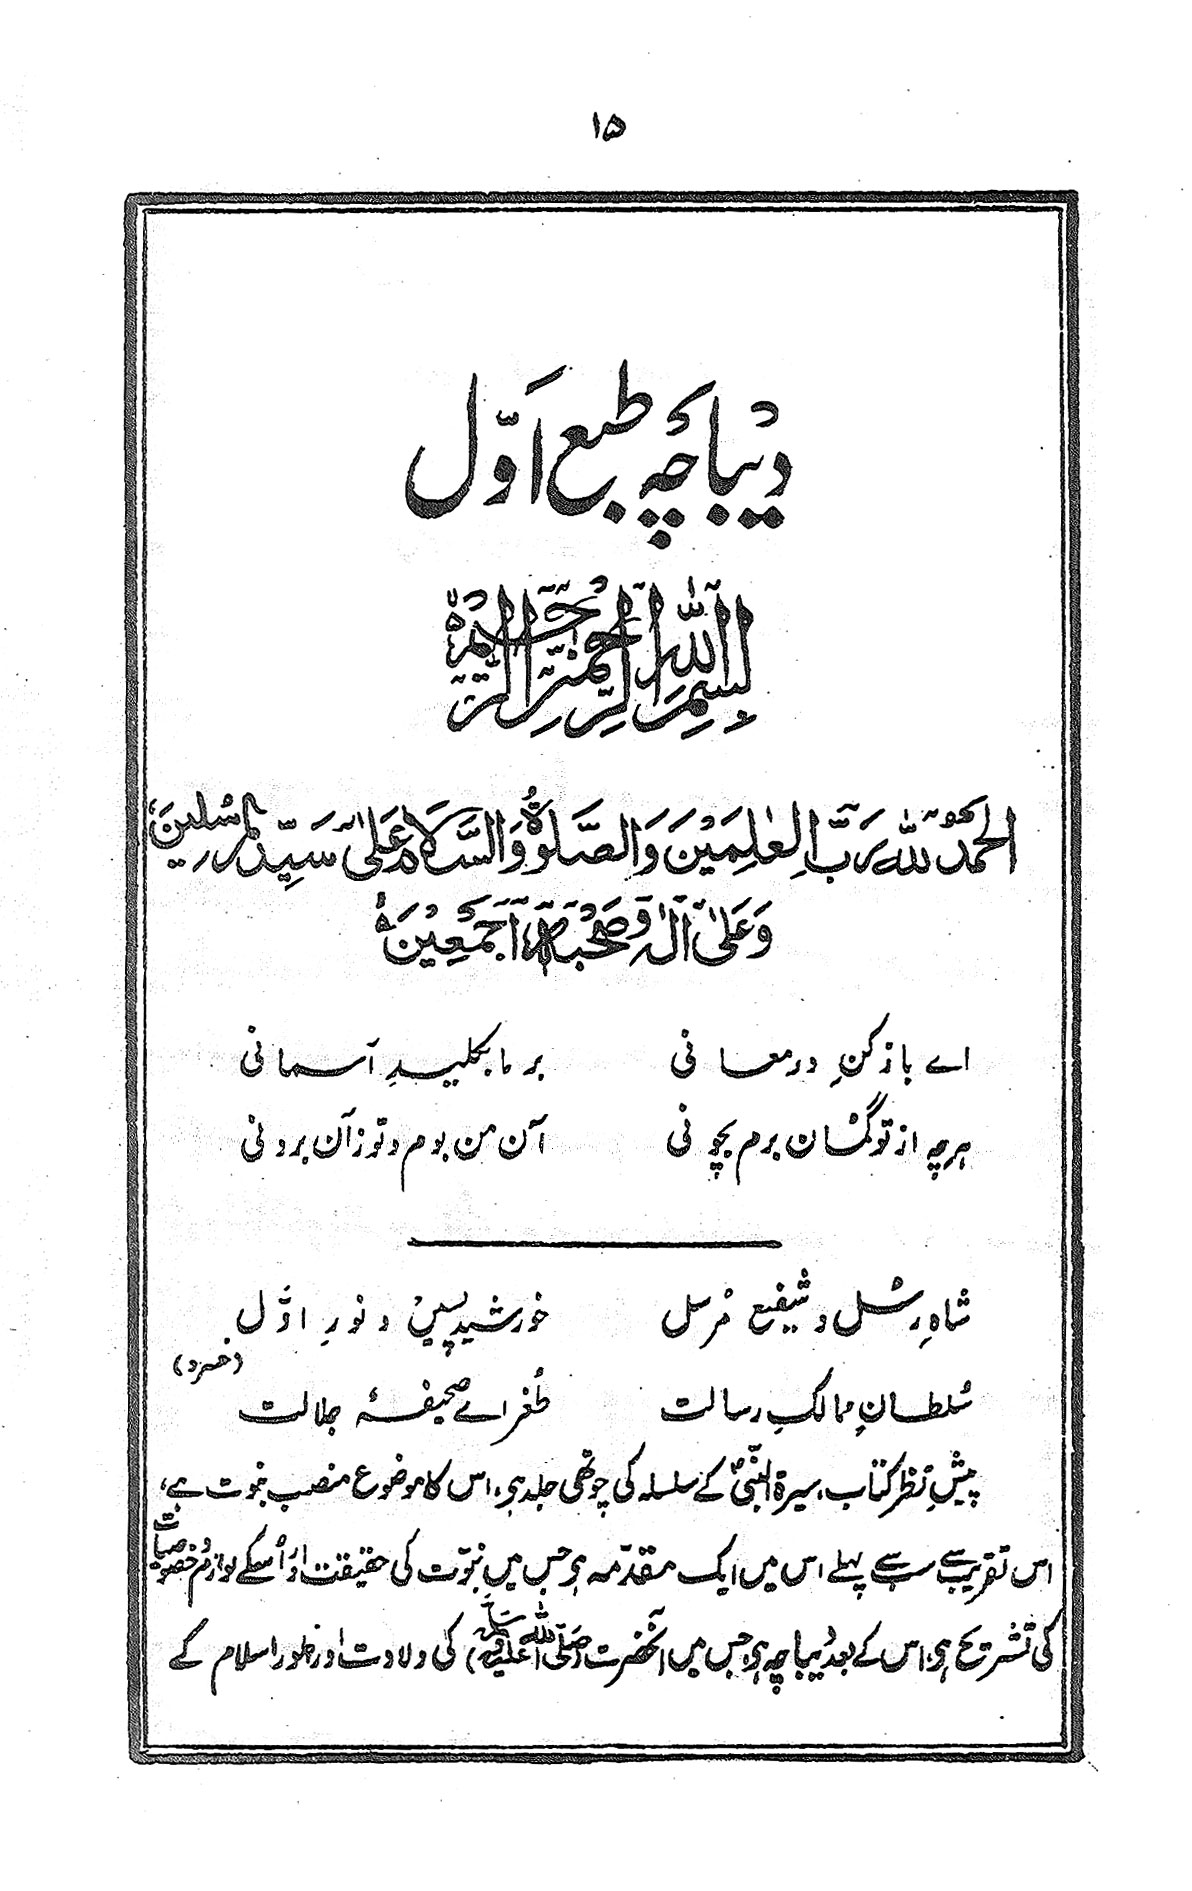 ۱۵
دیباچۂ طبع اوّل
بسم الله الرحمن الرحیم
الحمد لله رب العلمین والصلوٰة والسلام علیٰ سید المرسلین
وعلیٰ اٰله وصحبه اجمعین
اے باز کنِ درِ معانی بر ما بکلیدِ آسمانی
ہرچہ از تو گمان برم بچونی آن من بوم و تو زآن برونی
شاہِ رسل و شفیع مُرسل خورشید پسین و نورِ اوّل
(خسرو)
سُلطانِ ممالکِ رسالت طُغراے صحیفۂ جلالت
پیشِ نظر کتاب، سیرۃ النبیؐ کے سلسلہ کی چوتھی جلد ہی، اس کا موضوع منصبِ نبوت ہے،
اس تقریب سے سب سے پہلے اس میں ایک مقدّمہ ہی جس میں نبوّت کی حقیقت اور اُسکے لوازم و خصوصیات
کی تشریح ہی، اس کے بعد دیباچہ ہی، جس میں آنحضرت (صلی اللہ علیہ وسلم) کی ولادت اور ظہورِ اسلام کے